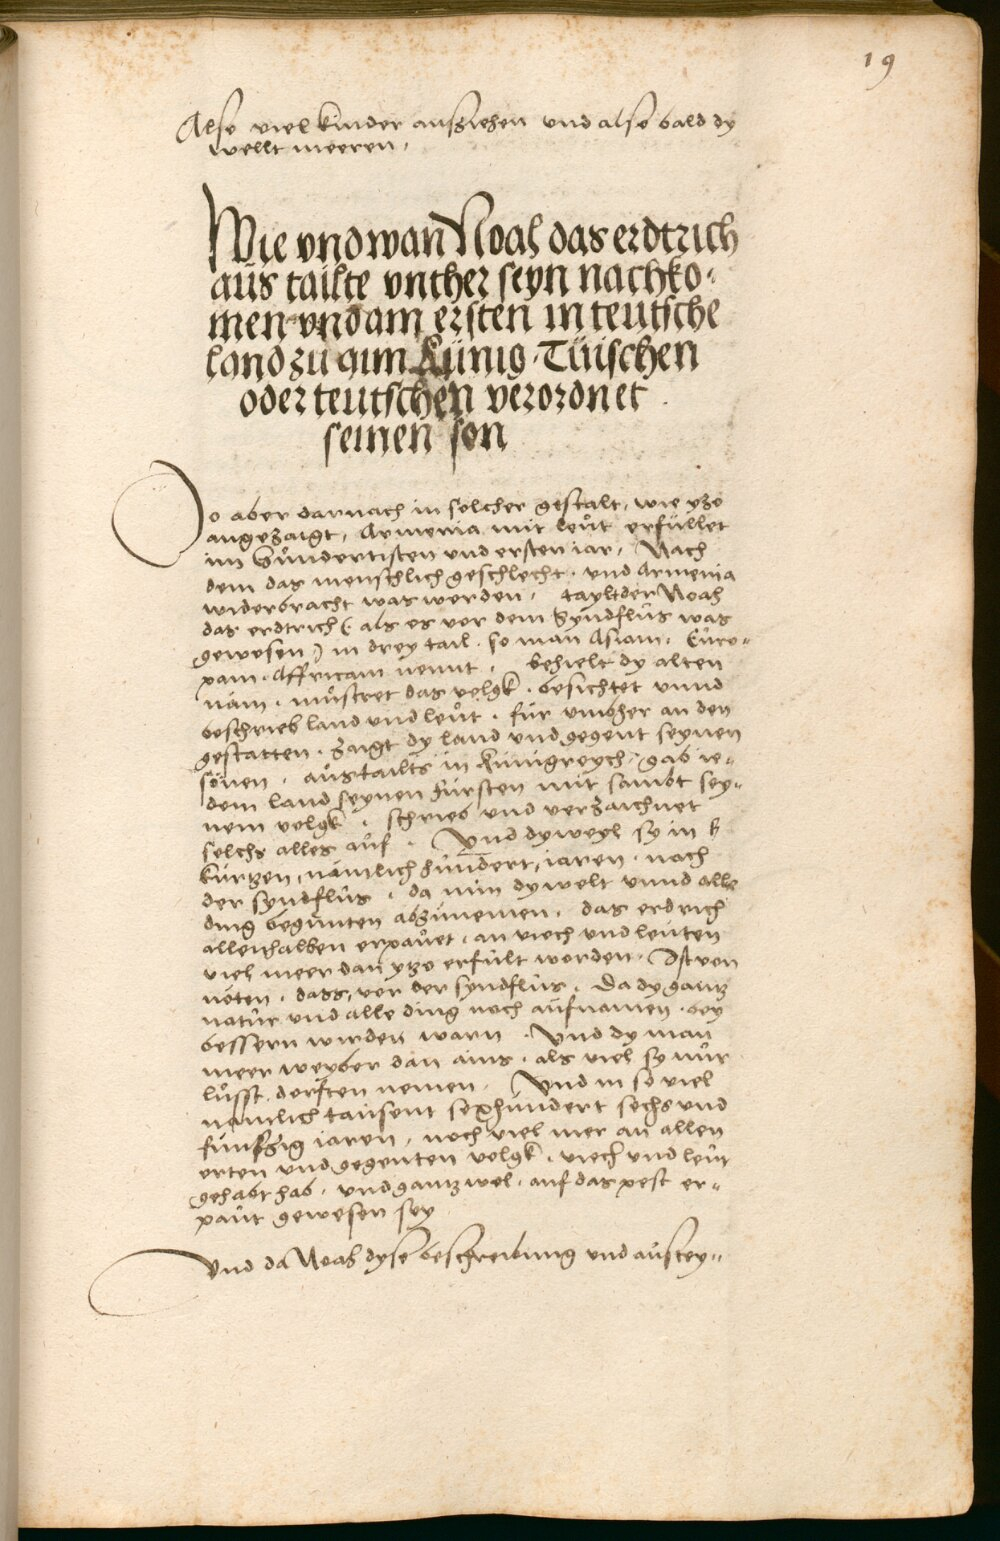 19
Also viel kinder aufziehen und also bald dy
wellt meeren,
Wie vnd wan Noah das erdtrich
aus tailte vnther seyn nachko-
men vnd am ersten in teutsche
land zu aim Künig Tüischen
oder teutschen verordnet
seinen son
Do aber darnach in solcher gestalt, wie yzo
angezaigt, Armenia mit leut erfüllet
im hundertisten und ersten iar, Nach
dem das menschlich geschlecht, und Armenia
widerbracht was worden, taylt der Noah
das erdtrich (als es vor dem Syndflus was
gewesen) in drey tail, so man Asiam, Euro-
pam, Affricam nennt, behielt dy alten
näm, mustret das volgk, besichtet unnd
beschrieb land und leut, für umbher an den
gestatten, zaigt dy land und gegent seynen
sönen, austailts in Künigreych, gab ie-
dem land seynen fürsten mit sambt sey-
nem volgk, schrieb und verzaichnet
solchs alles auf. Und dyweyl sy in
kurtzen, nämlich hundert, iaren, nach
der syndflus, da nun dy welt unnd alle
ding begunten abzunemen, das erdrich
allenhalben erpauet, an viech und leuten
viel meer dan yzo erfült worden. Ist von
nöten, dass, vor der syndflus, da dy gantz
natur und alle ding noch aufnamen, bey
bessern wirden warn. Und dy man
meer weyber dan ains, als viel sy nur
lusst, dorften nemen. Und in so viel
nämlich tausent sexhundert sechs und
fünfzig iaren, noch viel mer an allen
orten und gegenten volgk, viech und leut
gehabt hab, und gantz wol, auf das pest er-
paut gewesen sey
Und da Noah dyse beschreibung und austey-